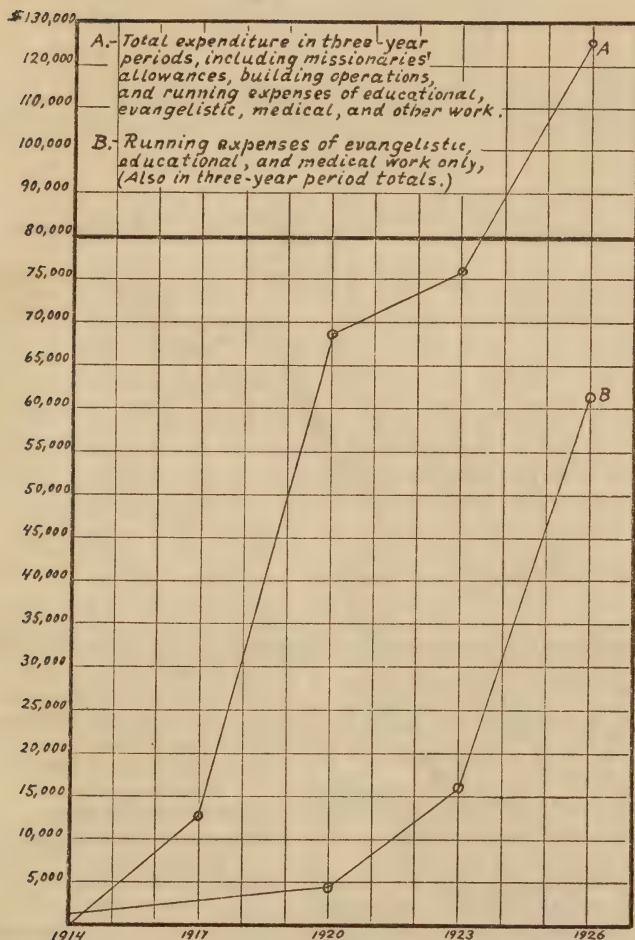 $130,000
120,000
110,000
100,000
90,000
80,000
75,000
70,000
65,000
60,000
55,000
50,000
45,000
40,000
35,000
30,000
25,000
20,000
15,000
10,000
5,000
A.- Total expenditure in three-year
periods, including missionaries'
allowances, building operations,
and running expenses of educational,
evangelistic, medical, and other work.
B.- Running expenses of evangelistic,
educational, and medical work only,
(Also in three-year period totals.)
A
B
1914 1917 1920 1923 1926